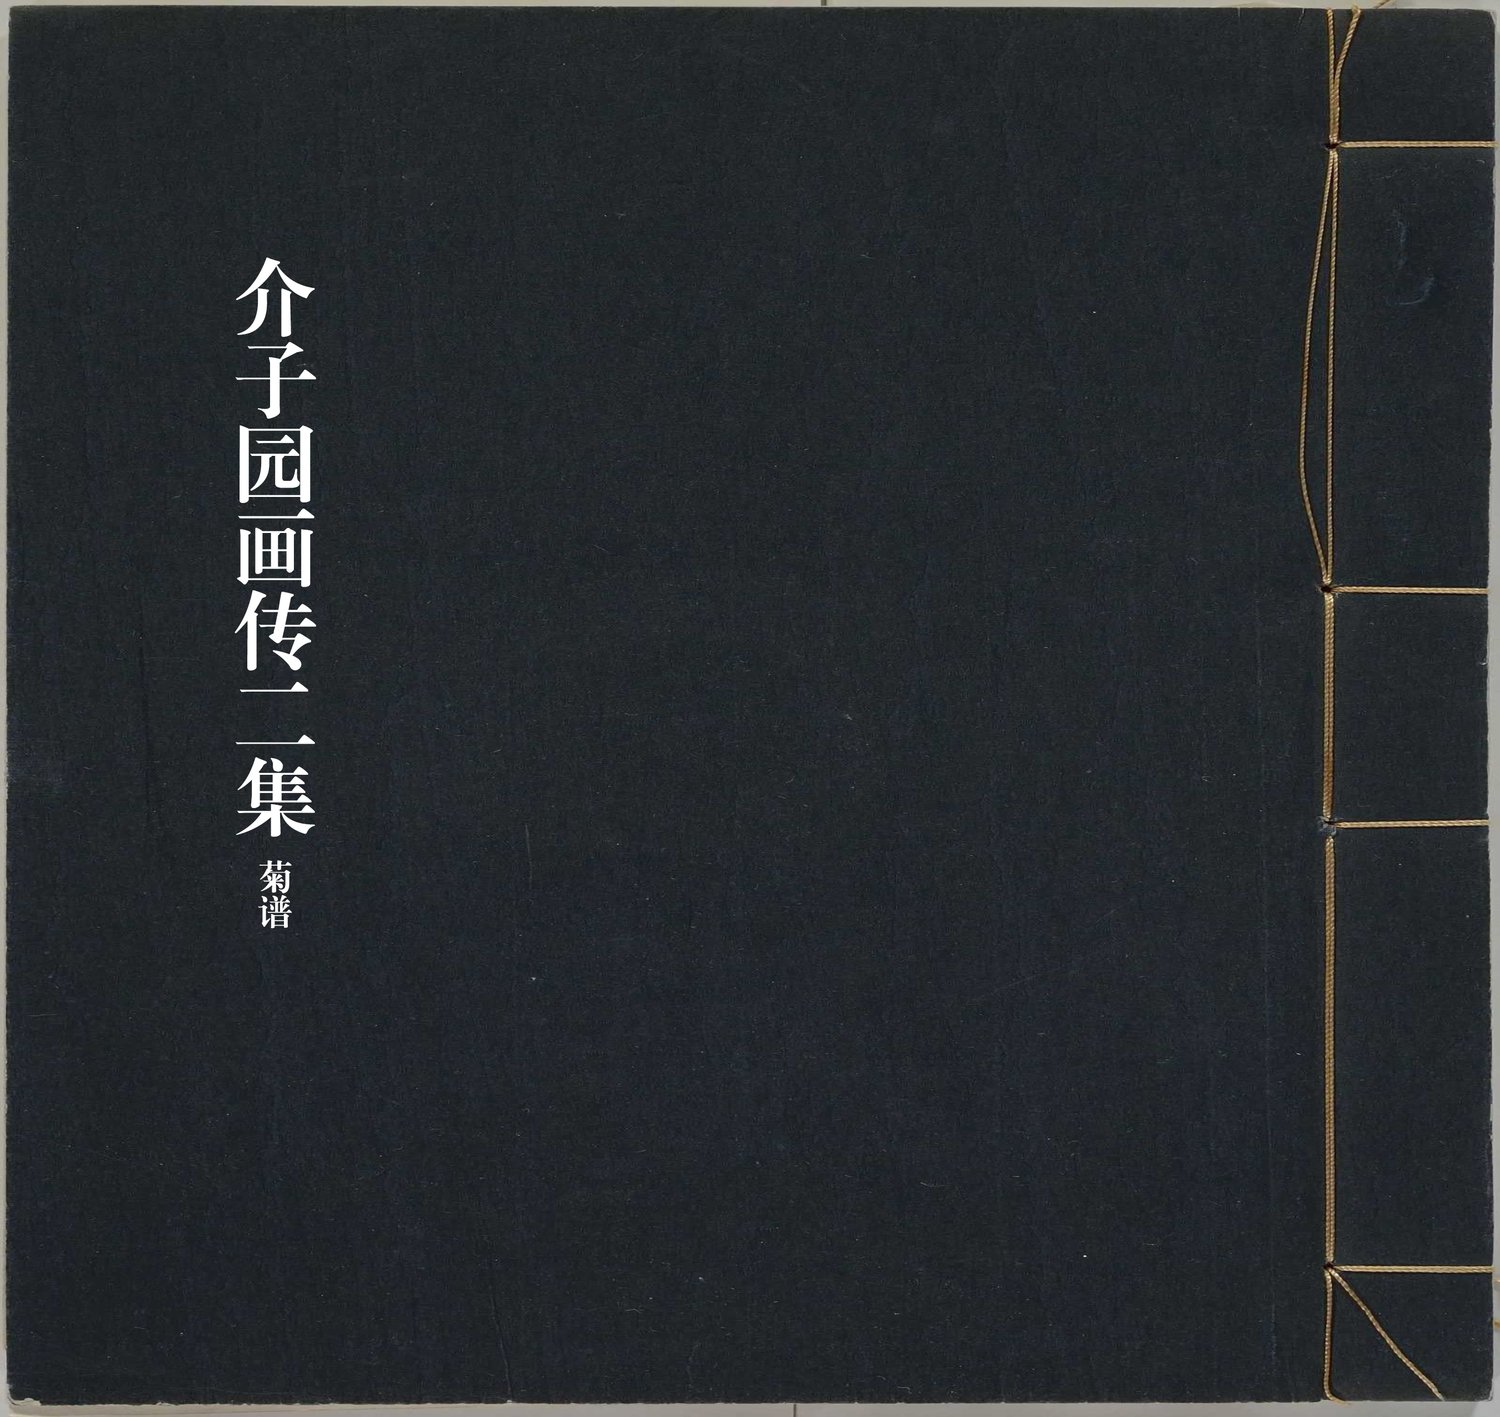 介子园画传二集
菊谱